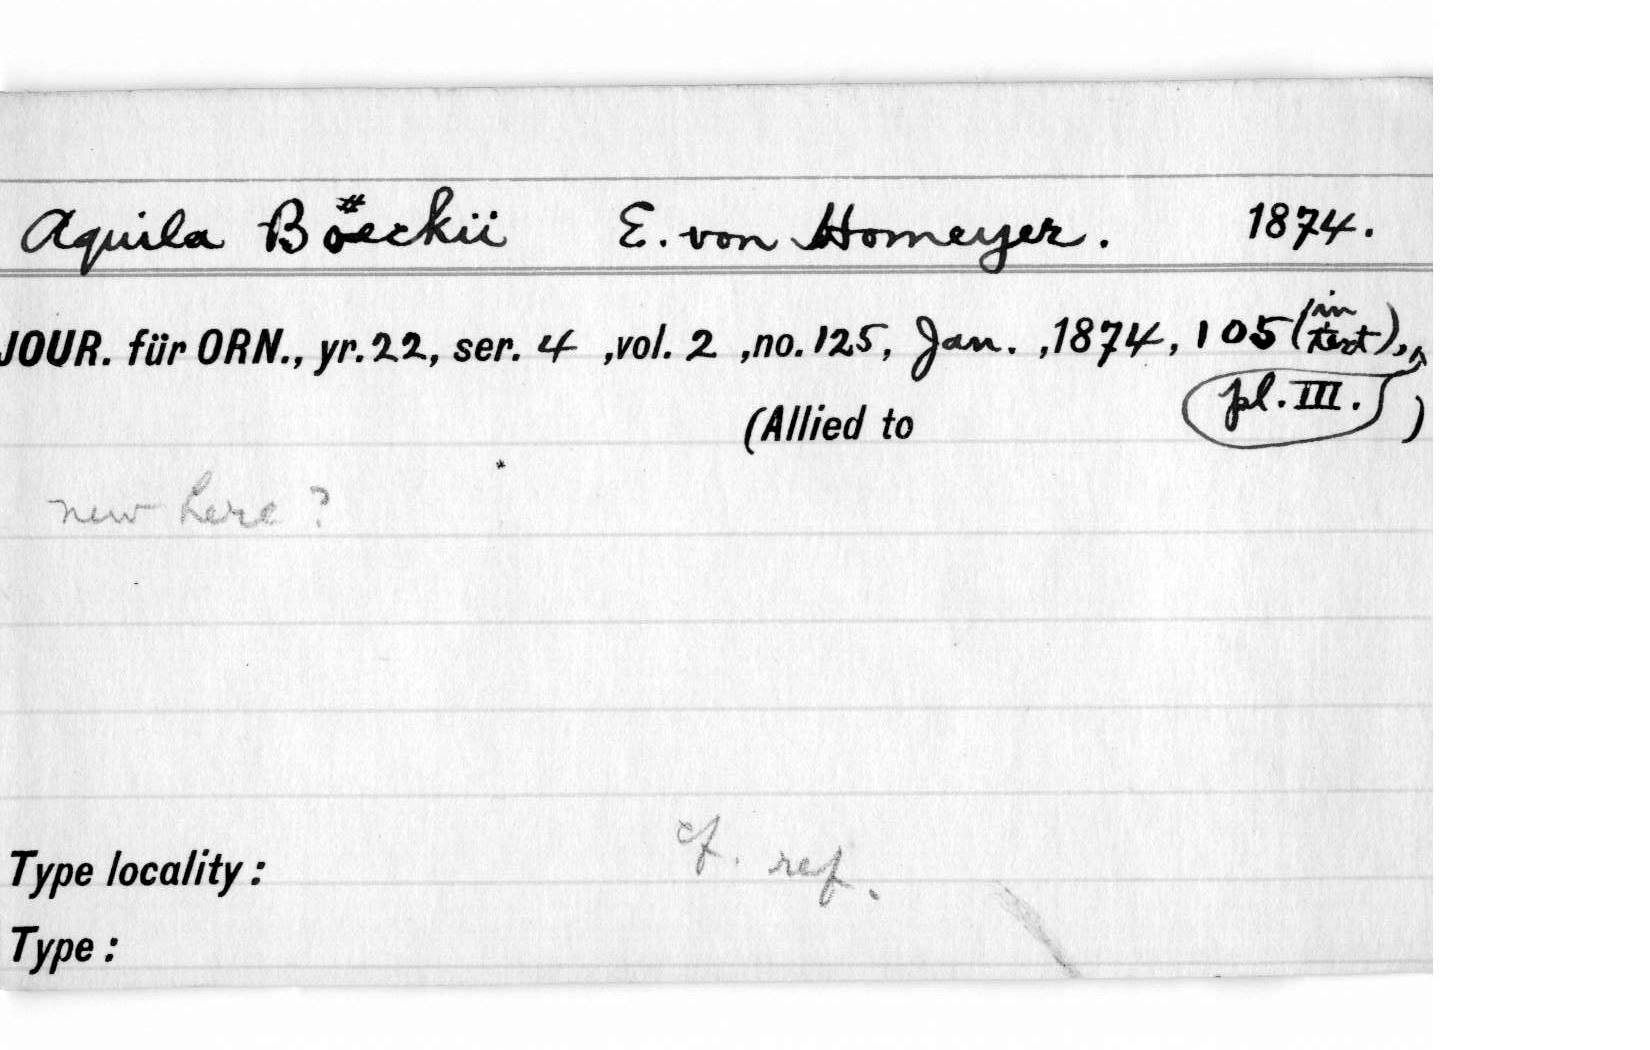 Aquila Böeckii E. von Homeyer. 1874.
JOUR. für ORN., yr. 22, ser. 4 ,vol. 2 ,no. 125, Jan. ,1874, 105 (in text),
pl. III.
(Allied to )
new here ?
cf. ref.
Type locality :
Type :